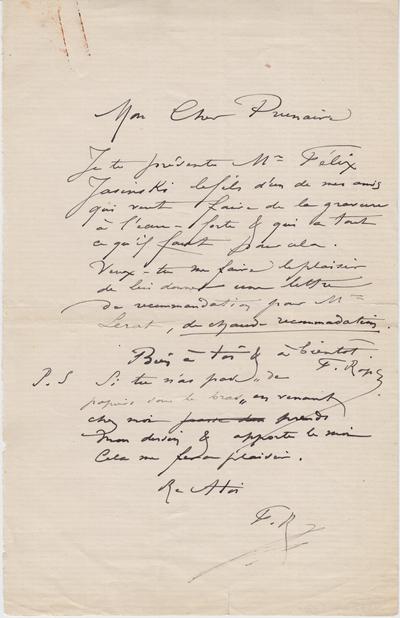 Mon Cher Prunaire
Je te présente Mr Félix
Jasinski le fils d'un de mes amis
qui veut faire de la gravure
à l'eau-forte & qui a tout
ce qu'il faut pour cela.
Veux-tu me faire le plaisir
de lui donner une lettre
de recommandation pour Mr
Lerat, de chaude recommadation.
Bien à toi & à bientôt.
F. Rops
P.S Si tu n'as pas „de
papiers sous le bras„ en venant
chez moi prends
mon dessin & apporte le moi
Cela me fera plaisir.
Re A toi
F. R